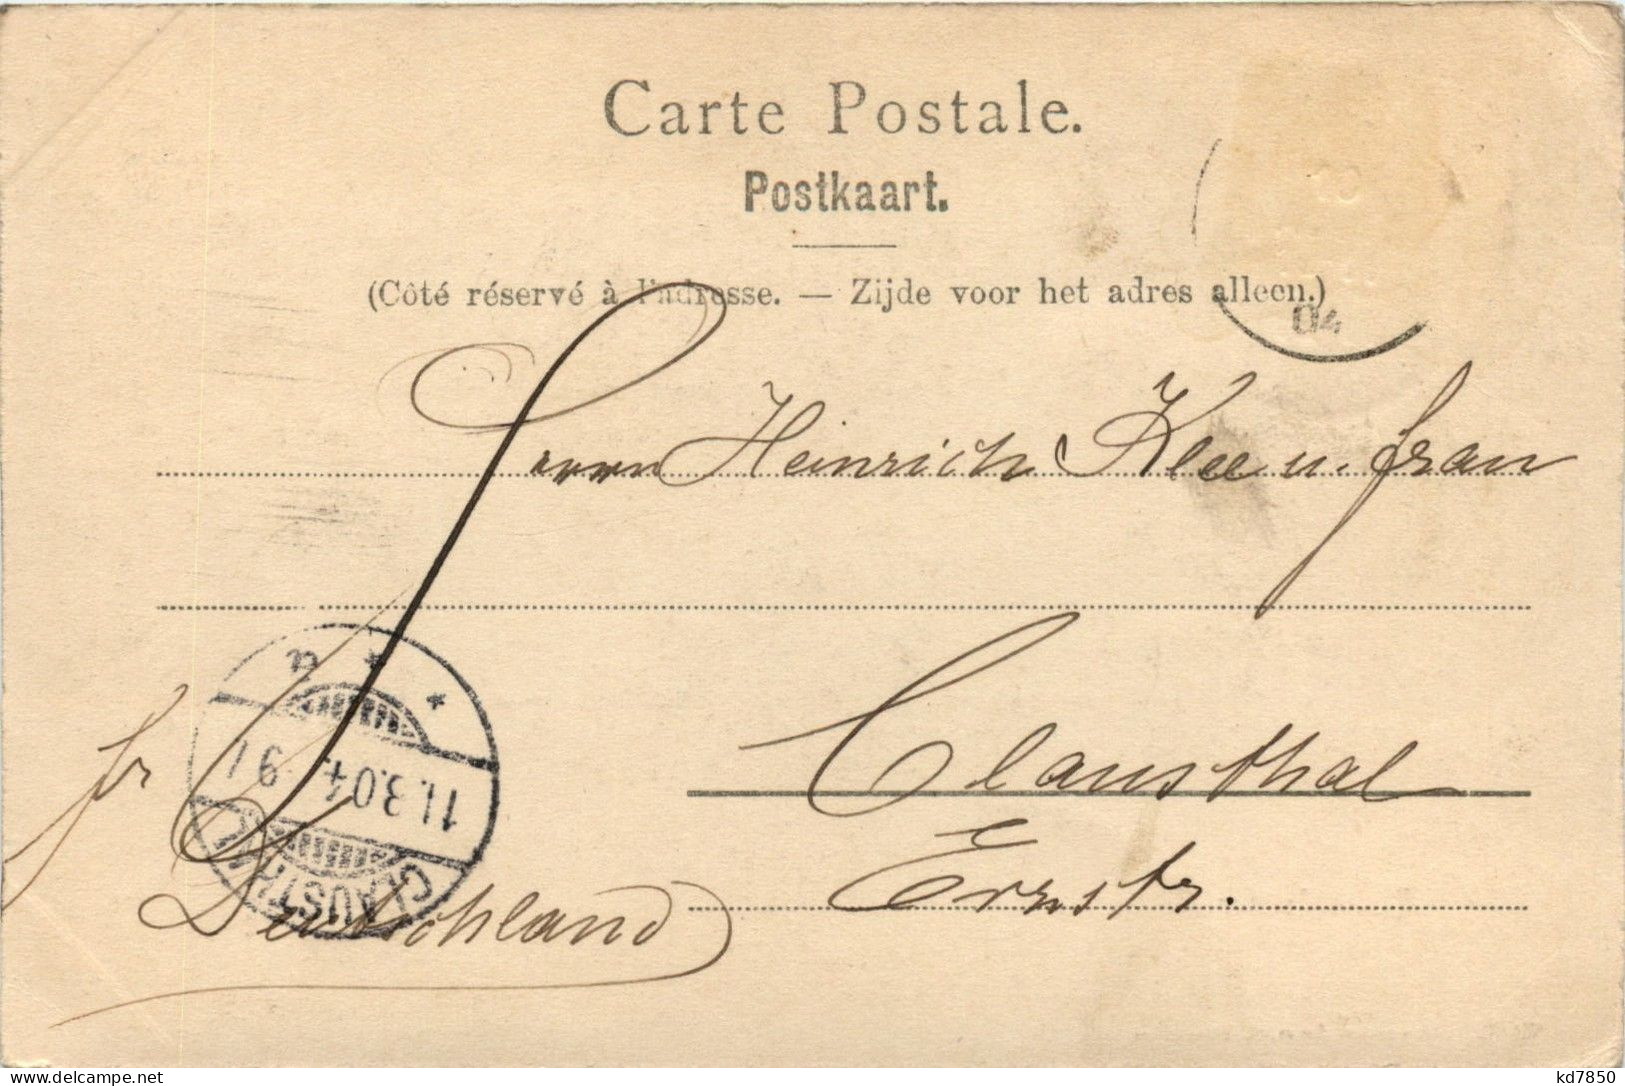 Carte Postale.
Postkaart.
(Côté réservé à l'adresse. — Zijde voor het adres alleen.)
04
Herrn Heinrich Klee u. frau
Clausthal
Erzstr.
fr
Deutschland
CLAUSTHAL
11.3.04. 9
kd7850